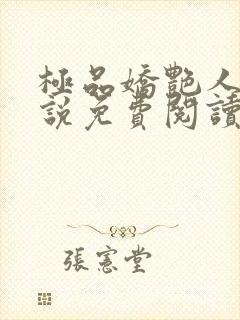 極品嬌艷人
說免費閱讀
張憲堂